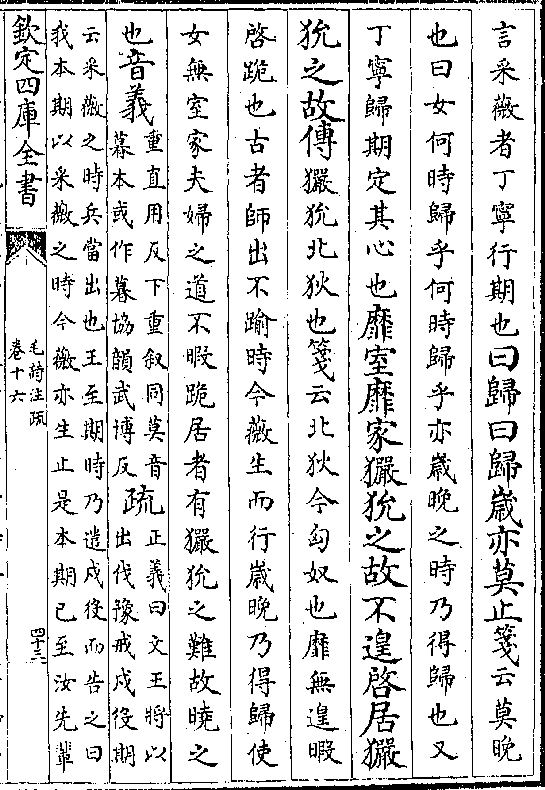 言采薇者丁寧行期也曰歸曰歸歲亦莫止箋云莫晚
也曰女何時歸乎何時歸乎亦歲晚之時乃得歸也又
丁寧歸期定其心也靡室靡家玁狁之故不遑啓居玁
狁之故傳玁狁北狄也箋云北狄今匈奴也靡無遑暇
啓跪也古者師出不踰時今薇生而行歲晚乃得歸使
女無室家夫婦之道不暇跪居者有玁狁之難故曉之
也音義重直用反下重叙同莫音
暮本或作暮協韻武博反疏正義曰文王將以
出伐豫戒戍役期
云采薇之時兵當出也王至期時乃遣戍役而告之曰
我本期以采薇之時今薇亦生止是本期已至汝先輩
欽定四庫全書
毛詩注疏
卷十六
四十三